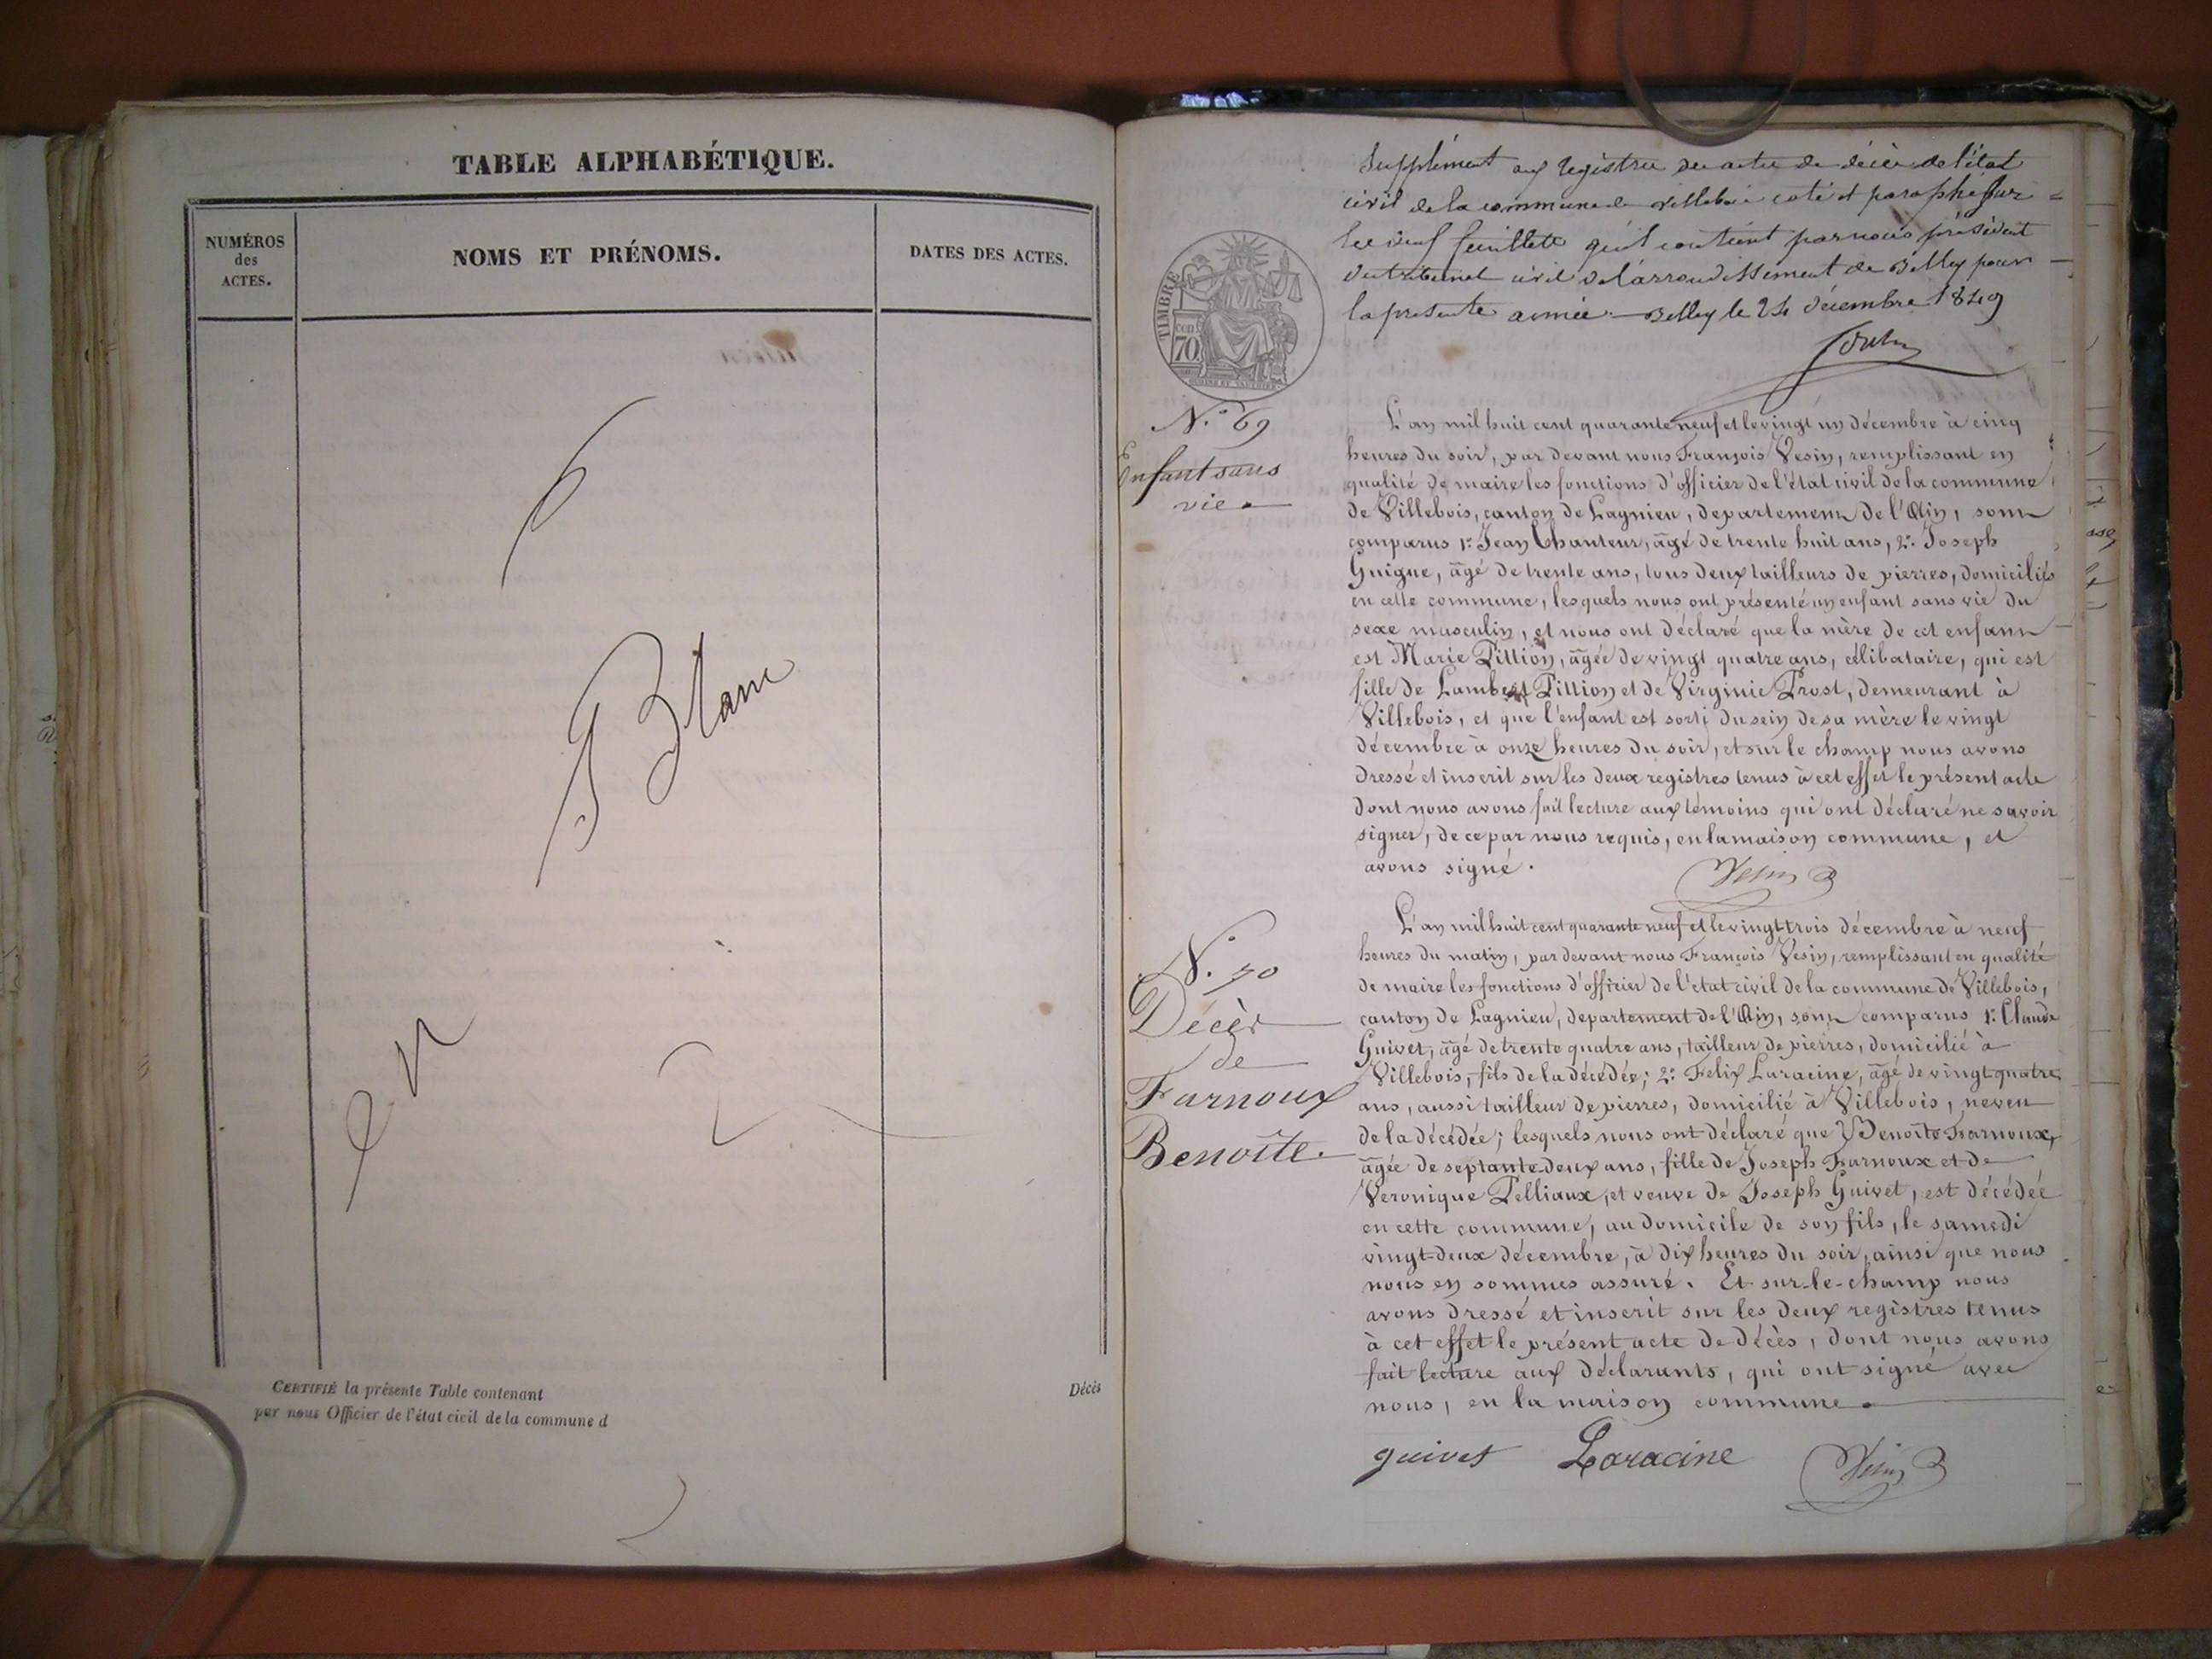 TABLE ALPHABÉTIQUE.
NUMÉROS
des
ACTES.
NOMS ET PRÉNOMS.
DATES DES ACTES.
Blanc
CERTIFIÉ la présente Table contenant
par nous Officier de l'état civil de la commune d
Décès
Supplément aux registres des actes de décès de l'état
civil de la commune de Villebois coté et paraphé sur
les feuillets qu'il contient par nous président
du tribunal civil de l'arrondissement de Belley pour
la présente année. Belley le 24 décembre 1849
TIMBRE
cent
70
N.o 69
Enfant sans
vie
L'an mil huit cent quarante neuf et le vingt un décembre à cinq
heures du soir, par devant nous François Vesin, remplissant en
qualité de maire les fonctions d'officier de l'état civil de la commune
de Villebois, canton de Lagnieu, département de l'Ain, sont
comparus 1.o Jean Chanteur, âgé de trente huit ans, 2.o Joseph
Guigue, âgé de trente ans, tous deux tailleurs de pierres, domiciliés
en cette commune, lesquels nous ont présenté un enfant sans vie du
sexe masculin, et nous ont déclaré que la mère de cet enfant
est Marie Pittion, âgée de vingt quatre ans, célibataire, qui est
fille de Lambert Pittion et de Virginie Prost, demeurant à
Villebois, et que l'enfant est sorti du sein de sa mère le vingt
décembre à onze heures du soir, et sur le champ nous avons
dressé et inscrit sur les deux registres tenus à cet effet le présent acte
dont nous avons fait lecture aux témoins qui ont déclaré ne savoir
signer, de ce par nous requis, en la maison commune, et
avons signé.
Vesin
N.o 70
Décès
de
Farnoux
Benoîte.
L'an mil huit cent quarante neuf et le vingt trois décembre à neuf
heures du matin, par devant nous François Vesin, remplissant en qualité
de maire les fonctions d'officier de l'état civil de la commune de Villebois,
canton de Lagnieu, département de l'Ain, sont comparus 1.o Claude
Guivet, âgé de trente quatre ans, tailleur de pierres, domicilié à
Villebois, fils de la décédée; 2.o Felix Laracine, âgé de vingt quatre
ans, aussi tailleur de pierres, domicilié à Villebois, neveu
de la décédée; lesquels nous ont déclaré que Benoîte Farnoux,
âgée de septante deux ans, fille de Joseph Farnoux et de
Veronique Pelliaux, et veuve de Joseph Guivet, est décédée
en cette commune, au domicile de son fils, le samedi
vingt-deux décembre, à dix heures du soir, ainsi que nous
nous en sommes assuré. Et sur-le-champ nous
avons dressé et inscrit sur les deux registres tenus
à cet effet le présent acte de décès, dont nous avons
fait lecture aux déclarants, qui ont signé avec
nous, en la maison commune.
guivet Laracine Vesin